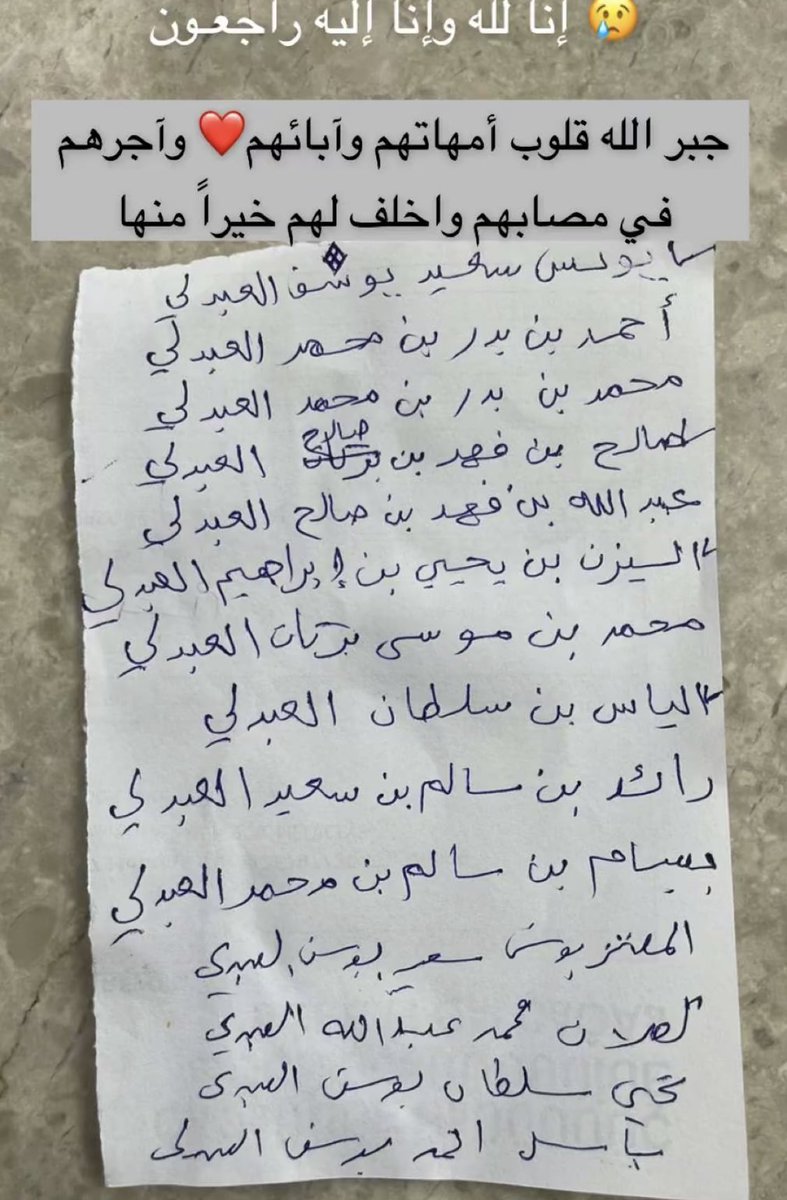 إنا لله وإنا إليه راجعون 😢
جبر الله قلوب أمهاتهم وآبائهم❤️ وآجرهم
في مصابهم واخلف لهم خيراً منها
يونس سعيد يوسف العبدلي
أحمد بن بدر بن محمد العبدلي
محمد بن بدر بن محمد العبدلي
صالح بن فهد بن صالح العبدلي
عبد الله بن فهد بن صالح العبدلي
اليزن بن يحيي بن إبراهيم العبدلي
محمد بن موسى بركات العبدلي
الياس بن سلطان العبدلي
رائد بن سالم بن سعيد العبدلي
بسام بن سالم بن محمد العبدلي
المعتز يونس سعيد يوسف العبدلي
محمد عبدالله العبدلي
يحي سلطان يوسف العبدلي
باسل احمد يوسف العبدلي